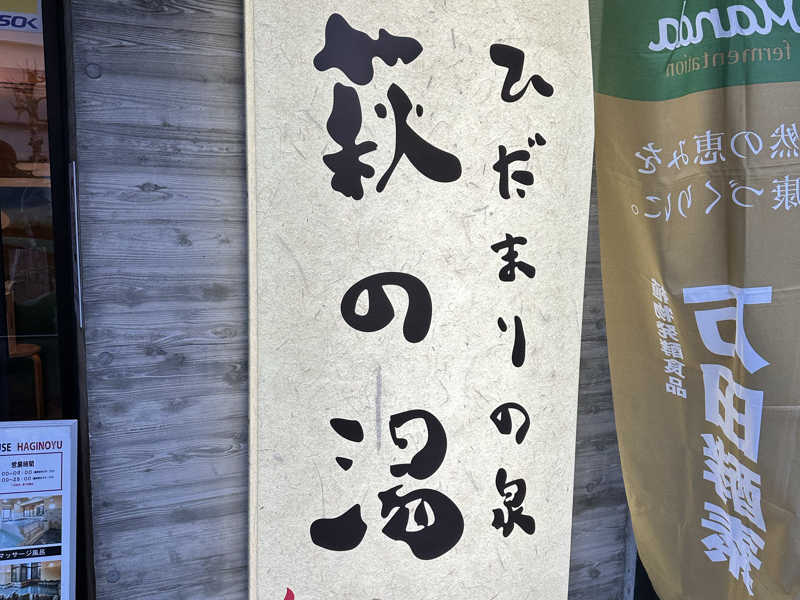 ひだまりの泉
萩の湯
HAGINOYU
営業時間
マッサージ風呂
fermentation
然の恵みを
康づくりに。
植物発酵食品
万田酵素